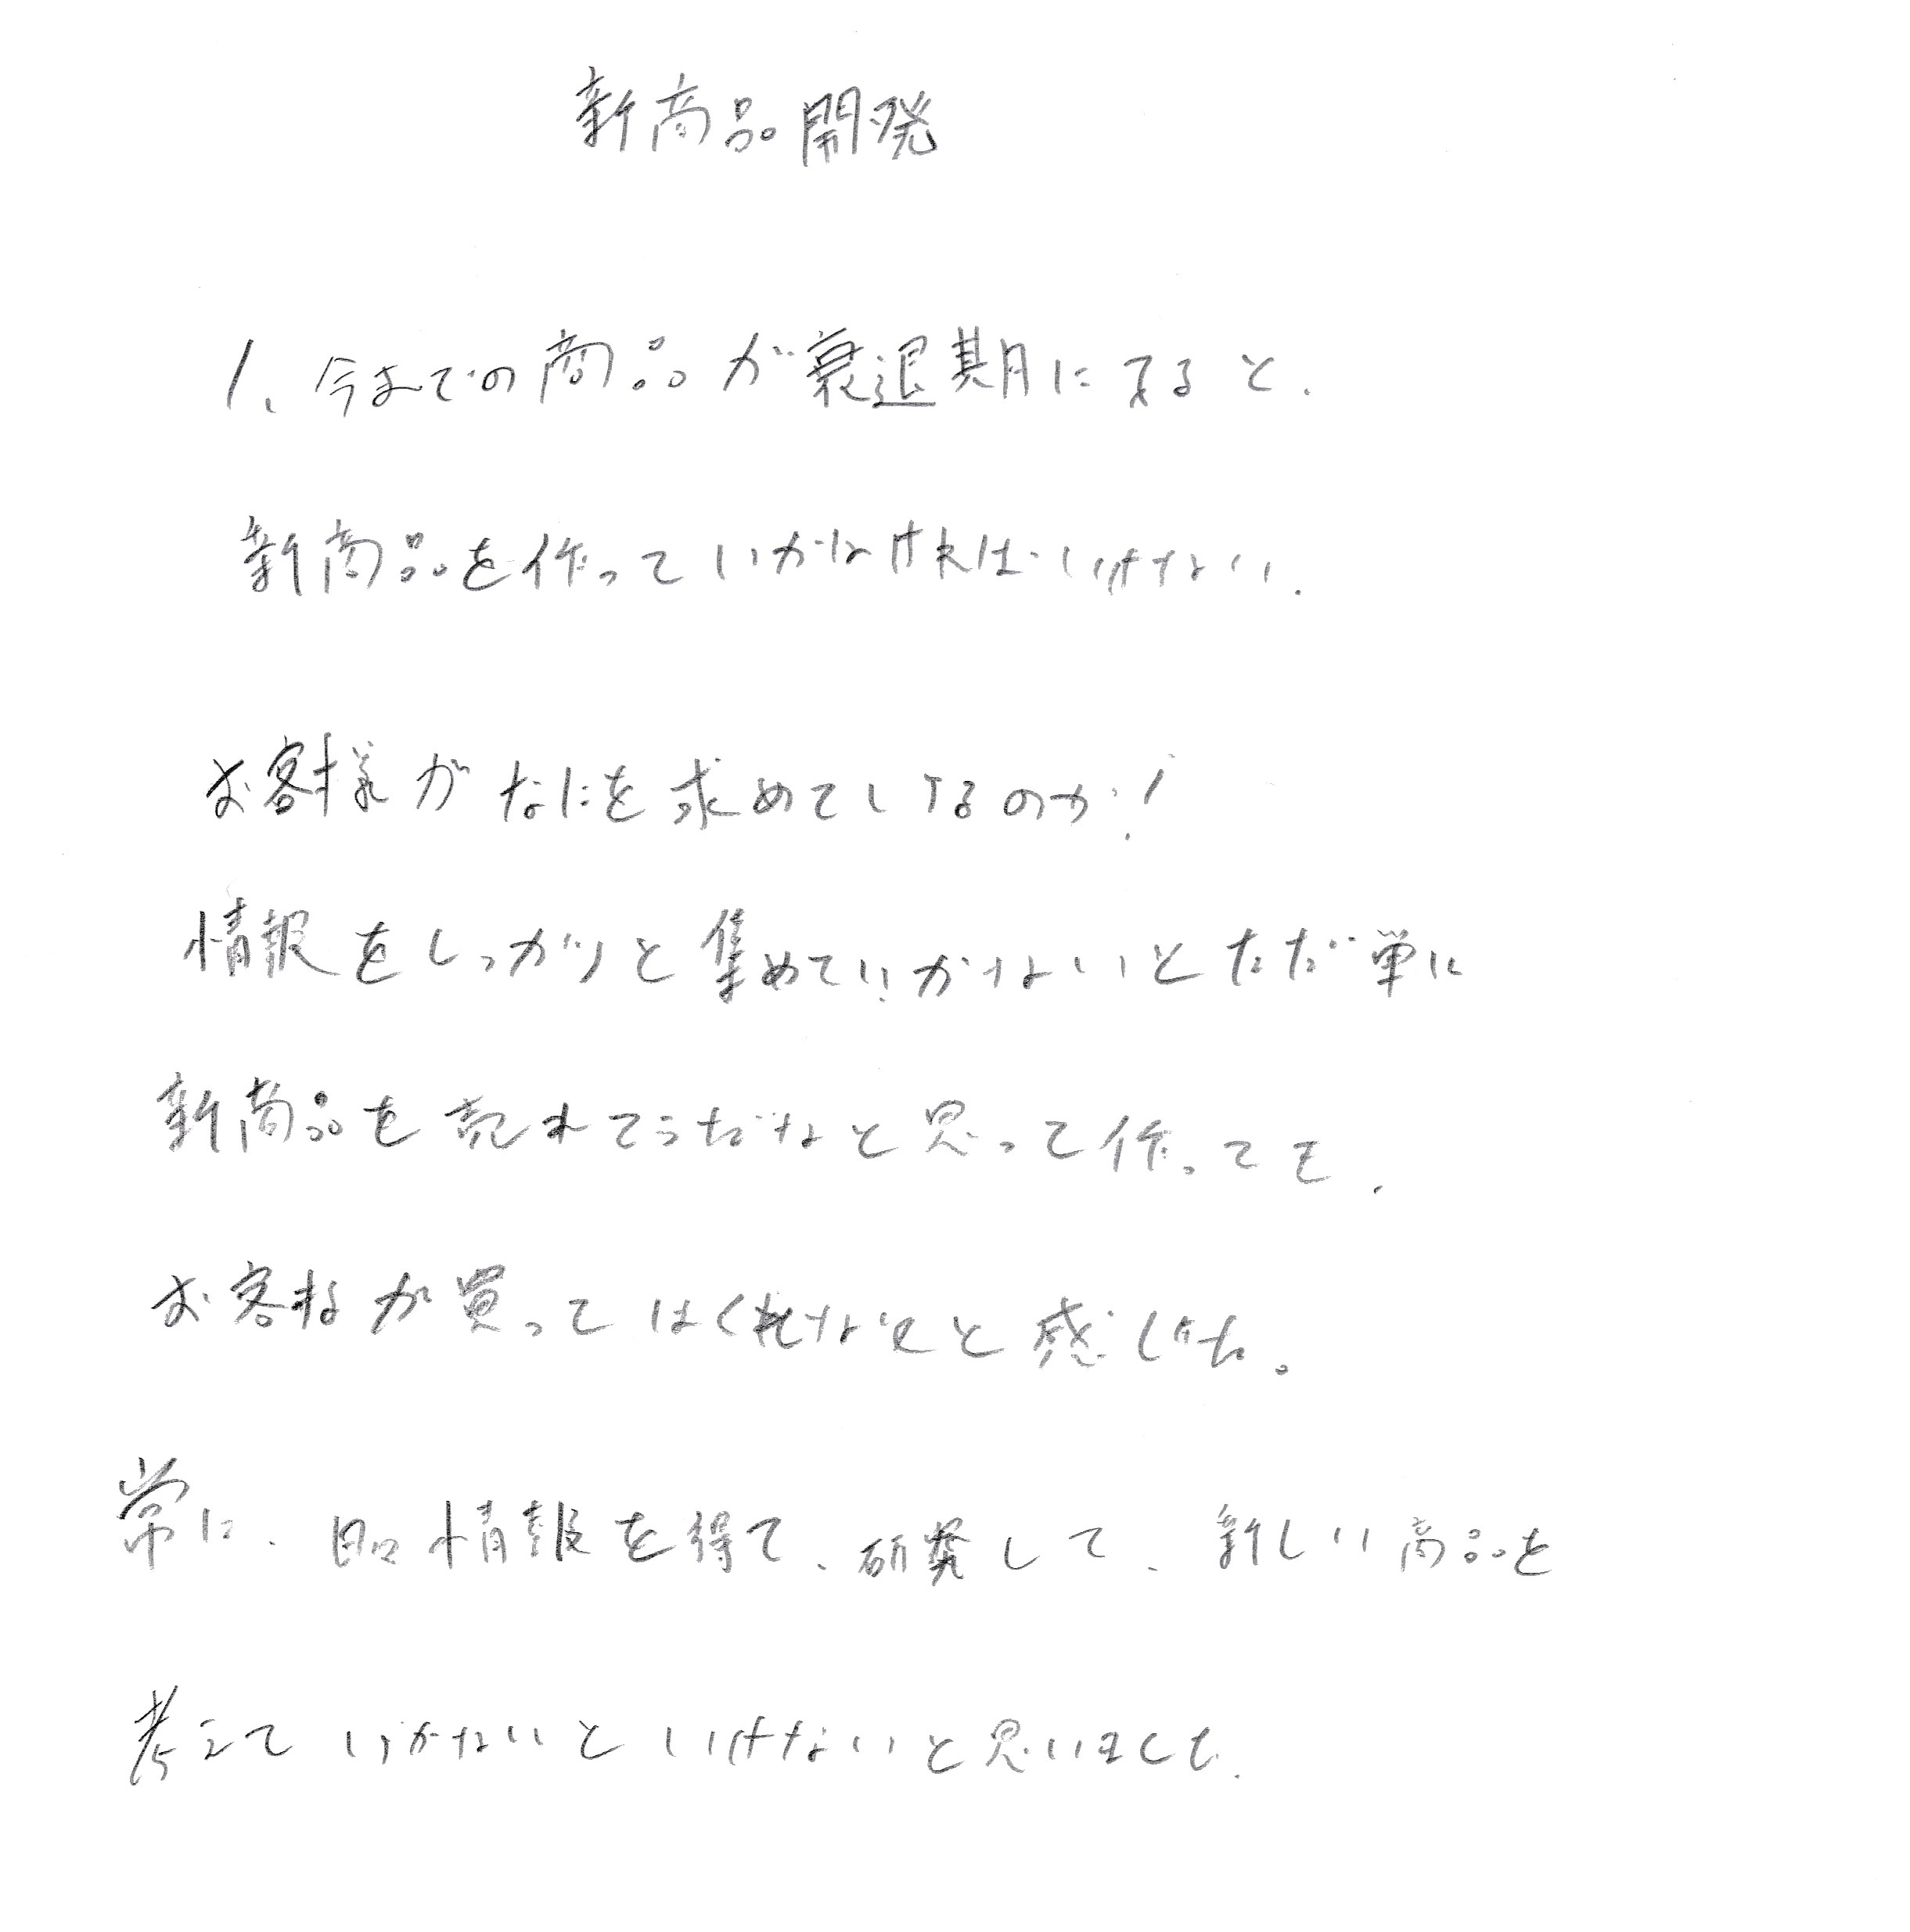 新商品開発
1、今までの商品が衰退期になると、
新商品を作っていかなければいけない、
お客様がなにを求めているのか!
情報をしっかりと集めていかないとただ単に
新商品を売れてそうだなと思って作っても、
お客様が買ってはくれないと感じた。
常に、日々情報を得て、研発して、新しい商品を
考えていかないといけないと思いました。